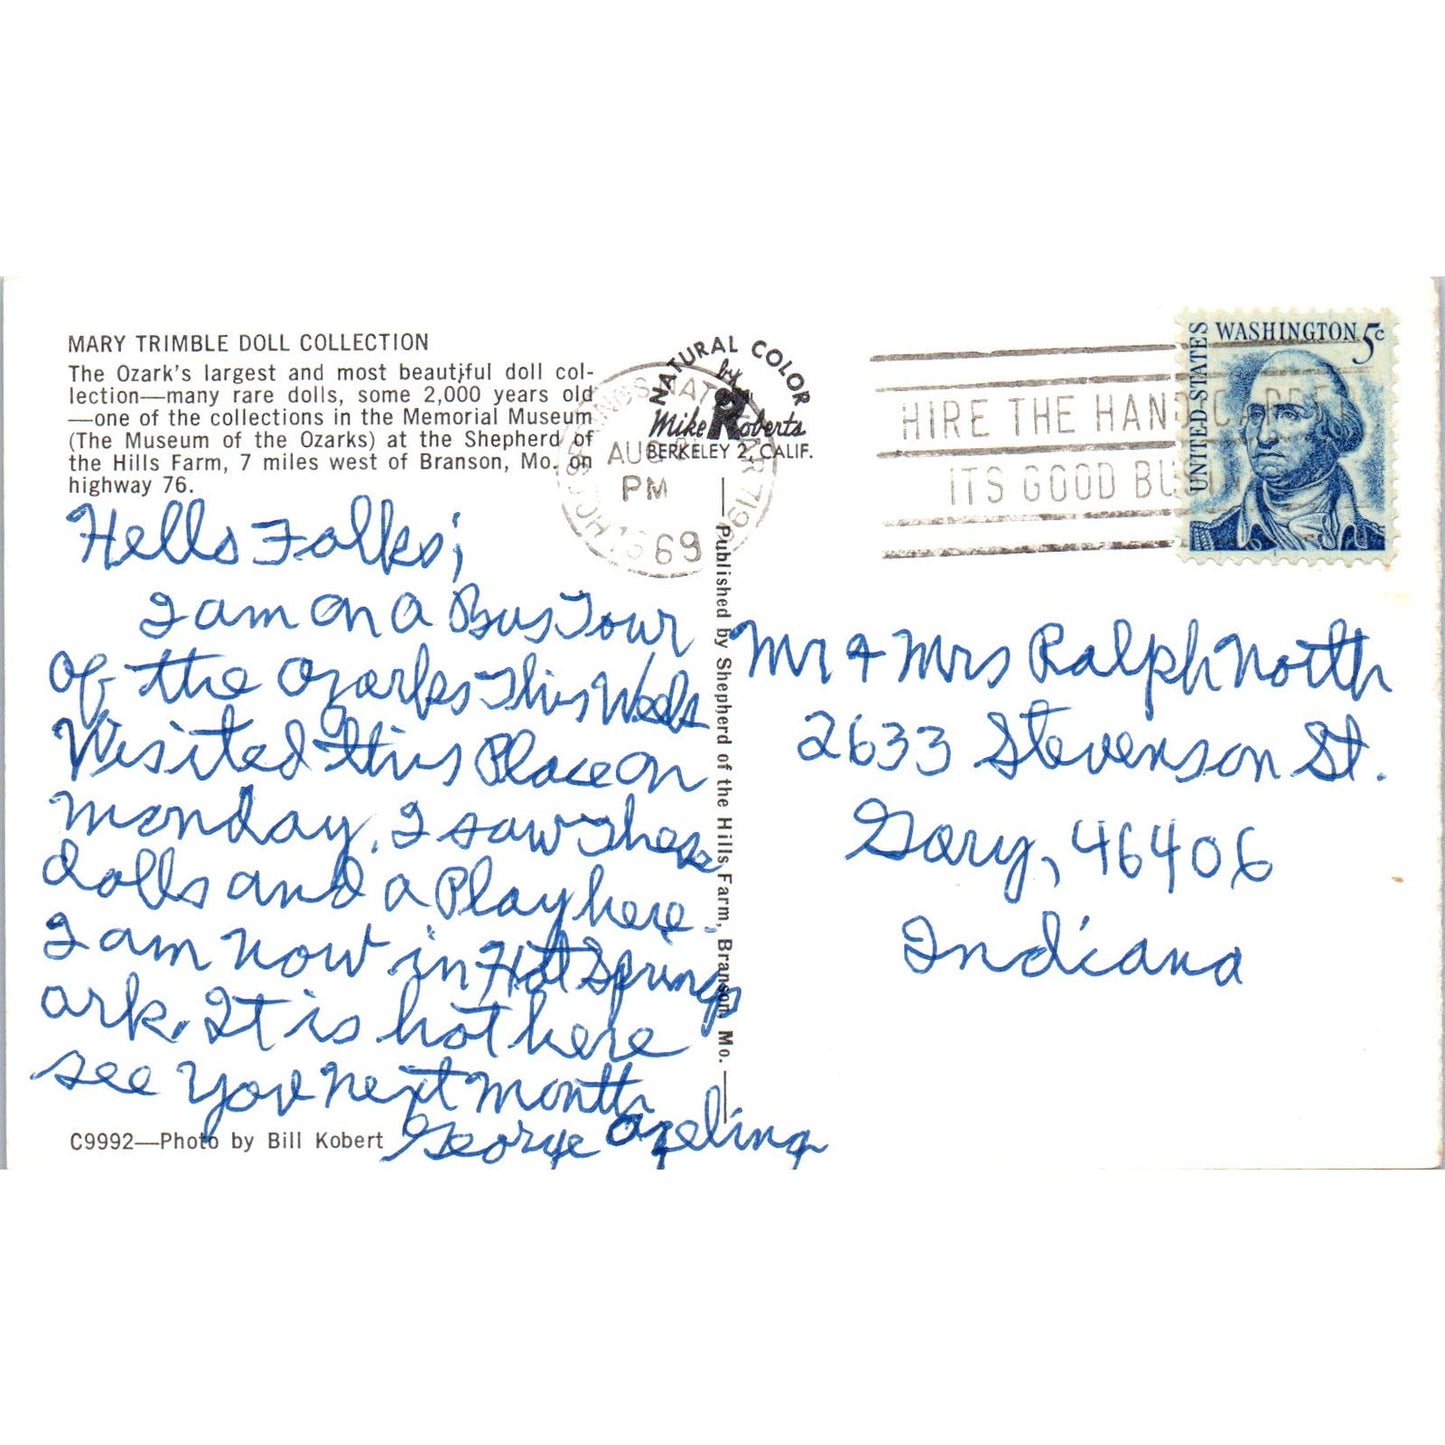 MARY TRIMBLE DOLL COLLECTION
The Ozark's largest and most beautiful doll col-
lection—many rare dolls, some 2,000 years old
—one of the collections in the Memorial Museum
(The Museum of the Ozarks) at the Shepherd of
the Hills Farm, 7 miles west of Branson, Mo. on
highway 76.
NATURAL COLOR
by
Mike Roberts
BERKELEY 2, CALIF.
AUG
PM
1969
HIRE THE HANDICAPPED
ITS GOOD BUSINESS
UNITED STATES
WASHINGTON 5c
Hello Folks;
I am on a Bus Tour
of the Ozarks This Week
Visited this Place on
Monday, I saw These
dolls and a Play here.
I am now in Hot Springs
ark. It is hot here
see you next month
George
Published by Shepherd of the Hills Farm, Branson, Mo.
Mr & Mrs Ralph North
2633 Stevenson St.
Gary, 46406
Indiana
C9992—Photo by Bill Kobert